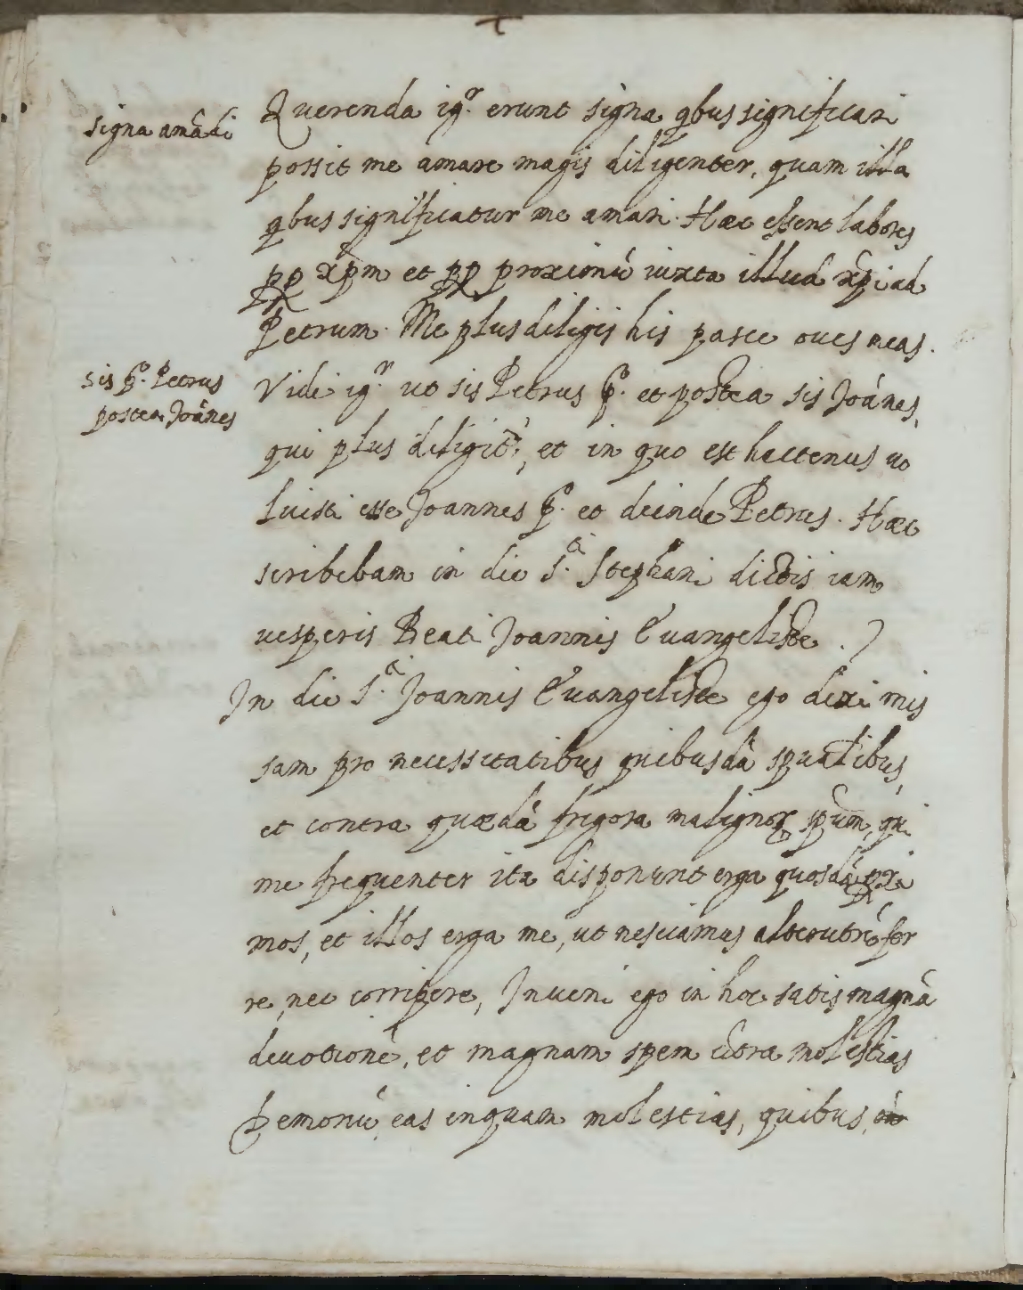 signa amãdi
Querenda igr. erunt signa qbus significari
possit me amare magis diligenter, quam illa
qbus significatur me amari. Hæc essent labores
pp xp̃m et pp proximũ iuxta illud xp̃i ad
Petrum. Me plus diligis his pasce oues meas.
sis po. Petrus
postea Joãnes
Vide igr ut sis Petrus po. et postea sis Joãnes,
qui plus diligitr, et in quo est hactenus uo
luisti esse Joannes po. et deinde Petrus. Hæc
scribebam in die S.ti Stephani dictis iam
uesperis Beati Joannis Euangeliste.
In die S.ti Joannis Euangeliste ego dixi mis
sam pro necessitatibus quibusdã sp̃ualibus,
et contra quædã frigora malignoꝝ sp̃uum, qui
me frequenter ita disponunt erga quosdã proxi
mos, et illos erga me, ut nesciamus alterutrũ fer
re, nec corripere, Inueni ego in hoc satis magnã
deuotionẽ, et magnam spem cõtra molestias
Demoniũ, eas inquam molestias, quibus,